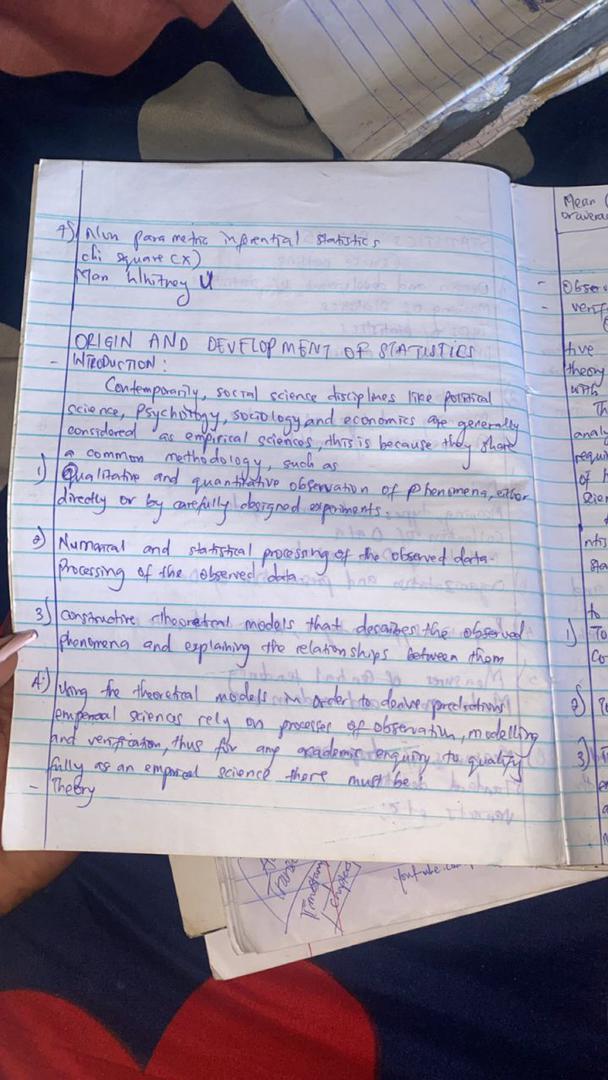 4) Non parametric inferential statistics
chi square (X)
Man Whitney U
ORIGIN AND DEVELOPMENT OF STATISTICS
- INTRODUCTION:
Contemporarily, social science disciplines like political
science, Psychology, sociology and economics are generally
considered as empirical sciences, this is because they share
a common methodology, such as
1) Qualitative and quantitative observation of phenomena, either
directly or by carefully designed experiments.
2) Numerical and statistical processing of the observed data-
Processing of the observed data
3) Constructive theoretical models that describes the observed
phenomena and explaining the relationships between them
4:) Using the theoretical models in order to derive predictions
emperical sciences rely on processes of observation, modelling
and verification, thus for any academic enquiry to qualify
fully as an emperical science there must be;
- Theory
Mean
-
-
theory
with
Th
of
to
1) To
2)
3)
Timestamp
youtube.com